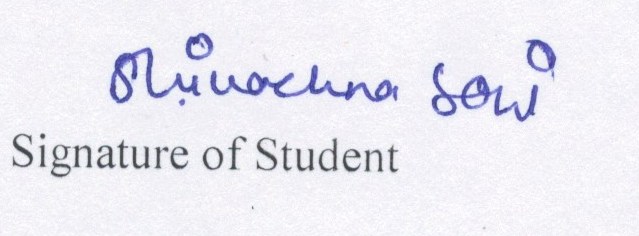 Soni
Signature of Student